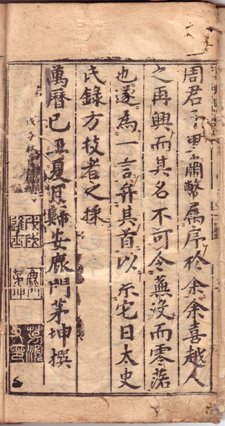 周君 屬序於余余喜越人
之再興而其名不可令蕪没而零落
也遂為一言弁其首以示它日太史
氏錄方技者之採
萬曆己丑夏月歸安鹿門茅坤撰